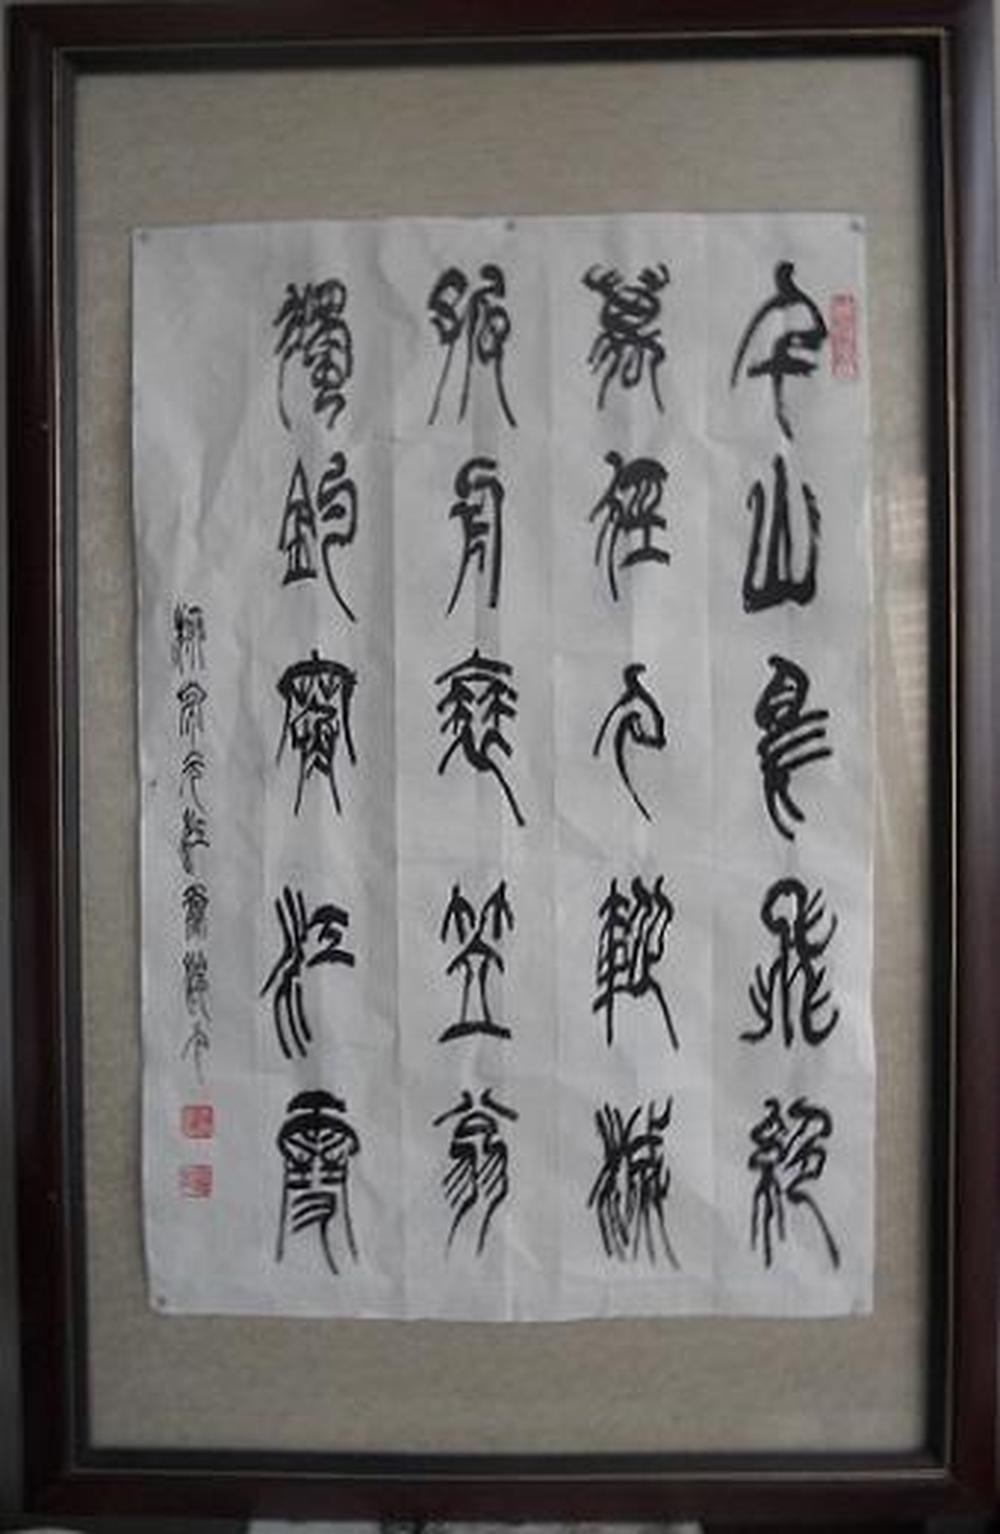 千山鳥飛絕
萬徑人蹤滅
孤舟蓑笠翁
獨釣寒江雪
柳宗元江雪